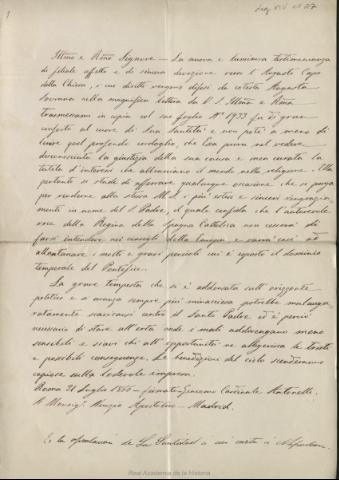 Illmo e Rmo Signore — La nuova e luminosa testimonianza
di filiale affetto e di sincera devozione verso l'Augusto Capo
della Chiesa, i cui diritti vengono difesi da cotesta Augusta
Sovrana nella magnifica lettera da V. S. Illma e Rma
trasmessami in copia col suo foglio Nº 1933 fu di gran
conforto al cuore di Sua Santità e non potè a meno di
lenire quel profondo cordoglio, che Essa prova nel vedere
disconosciuta la giustizia della sua causa e men curata la
tutela d'interessi che abbracciano il mondo nella religione. Ella
pertanto si studi di afferrare qualunque occasione che si porga
per rendere alla stessa M. S. i più estesi e sinceri ringrazia-
menti in nome del S. Padre, il quale confida che l'autorevole
voce della Regina della Spagna Cattolica non cesserà di
farsi intendere nei consigli della
allontanare i molti e gravi pericoli cui è esposto il dominio
temporale del Pontefice.
La grave tempesta che si è addensata sull'orizzonte
politico e si avanza sempre più minacciosa potrebbe malaugu-
ratamente scaricarsi contro il Santo Padre ed è perciò
necessario di stare all'erta onde i mali addivengano meno
sensibili e siavi chi all'opportunità ne allegerisca le triste
e possibili conseguenze. Le benedizioni del cielo scenderanno
copiose sulla lodevole impresa.
Roma 21 Luglio — firmato — Giacomo Cardinale Antonelli.
A Monsigr Nunzio Apostolico — Madrid.
Es la de Su Santidad a mi carta a
Real Academia de la Historia